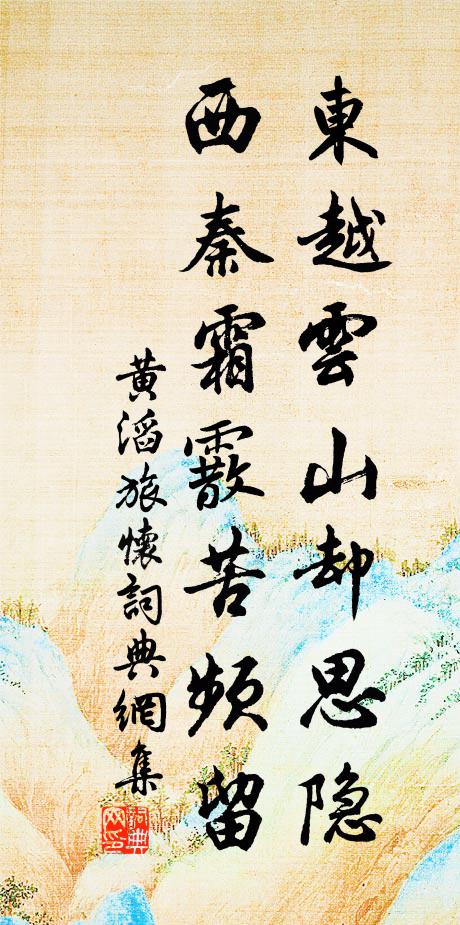 東越雲山却思隐
西秦霜霰苦頻留
黄滔旅懷詞典網集
詞典
网印